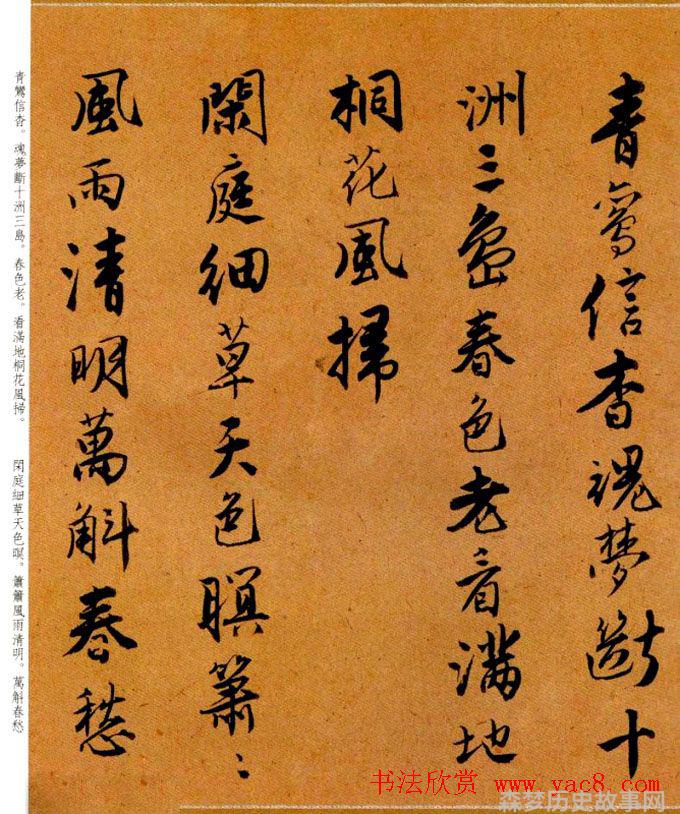 青鸞信杳魂夢斷十
洲三島春色老看滿地
桐花風掃
閑庭細草天色暝簫〻
風雨清明萬斛春愁
青鸞信杳。魂夢斷十洲三島。春色老。看滿地桐花風掃。
閑庭細草天色暝。簫簫風雨清明。萬斛春愁
书法欣赏 www.yac8.com
森梦历史故事网